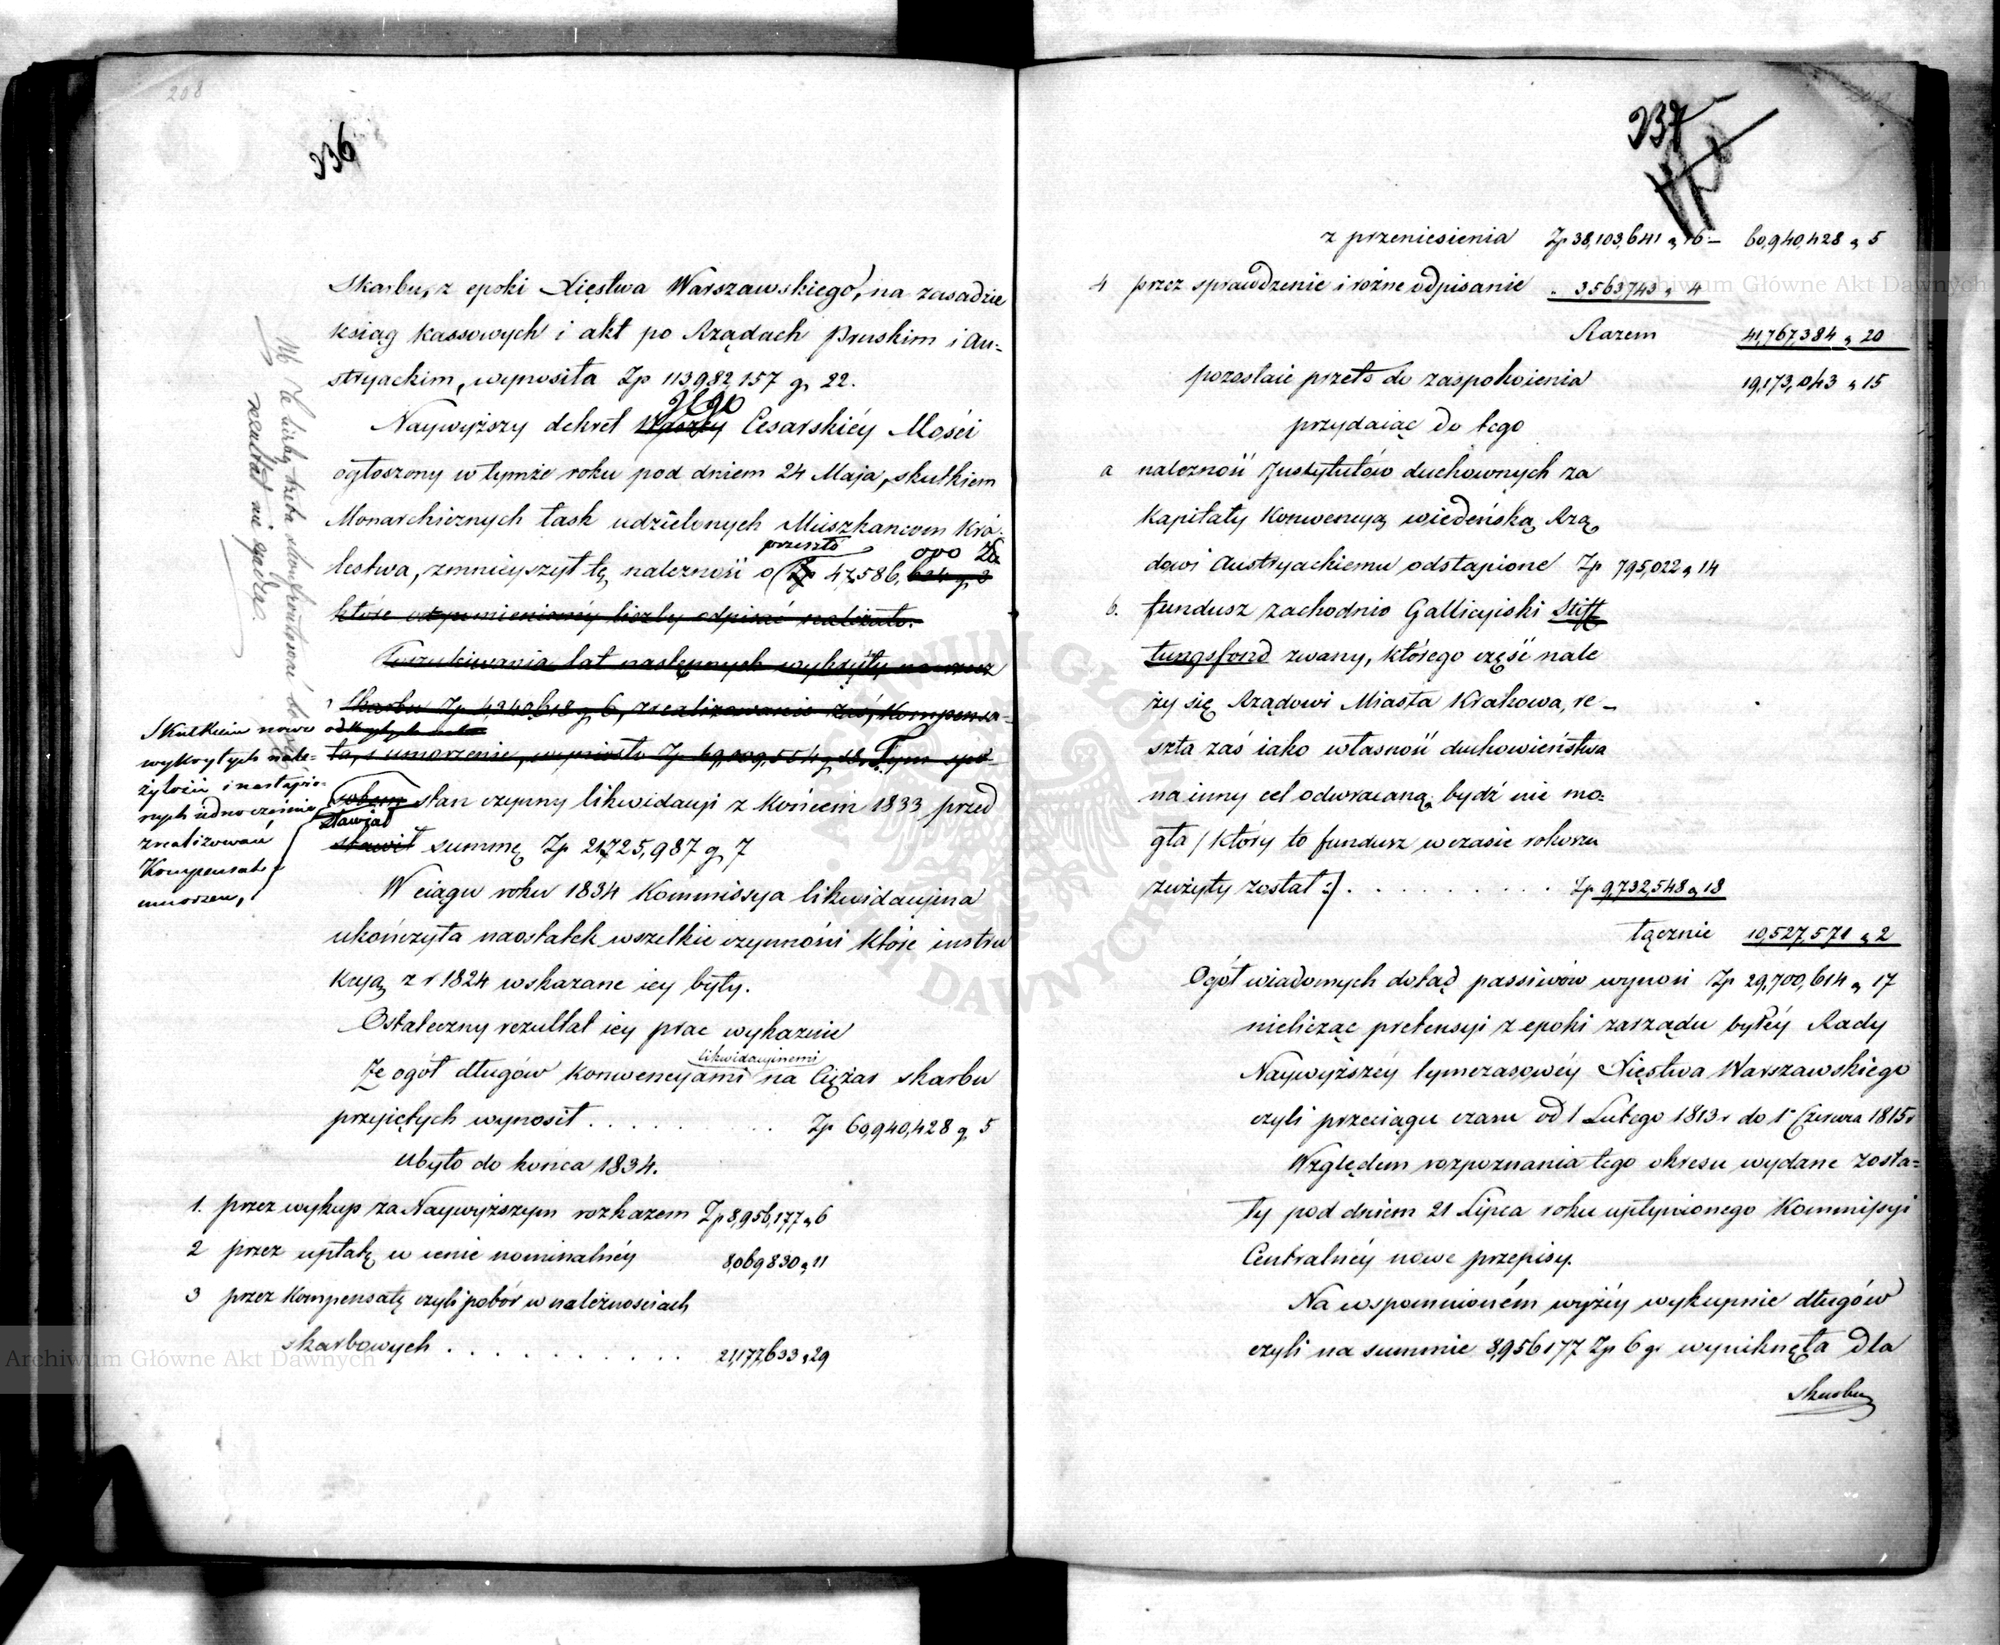 208
236
Skarbu, z epoki Xięstwa Warszawskiego, na zasadzie
ksiąg kassowych i akt po Rządach Pruskim i Au=
stryackim, wynosiła Zp 113982,157 g. 22.
Jego
Naywyższy dekret Waszey Cesarskiéy Mości
ogłoszony w tymże roku pod dniem 24 Maja, skutkiem
Monarchicznych łask udzielonych Mieszkańcom Kró-
przeszło 000 Zł.
lestwa, zmnieyszył tę należność o Zp 47,586,
które odpisać należało.
Poszukiwania lat następnych wykryły na rzecz
Skarbu Zp 4,340,618 g. 6, zrealizowanie zaś, Kompensa-
ta, i umorzenie, wyniosło Zp 69,009,554 g. 18. Tym spo-
sobem stan czynny likwidacyi z końcem 1833 przed
stawiał
stawił summę Zp 21,725,987 g. 7
W ciągu roku 1834 Kommissya likwidacyina
ukończyła naostatek wszelkie czynności które instru
kcyą z r 1824 wskazane iey były.
Ostateczny rezultat iey prac wykazuie
likwidacyinemi
Że ogół długów konwencyami na Ciężar skarbu
przyiętych wynosił . . . . . . Zp 60,940,428 g. 5
Ubyło do końca 1834.
1. przez wykup za Naywyższym rozkazem Zp 8,956,177 „ 6
2 przez upłatę w cenie nominalnéy 8,069,830 „ 11
3 przez Kompensatę czyli pobór w należnościach
skarbowych . . . . . . . . . . 21,177,633 „ 29
Skutkiem nowo odkrytych
wykrytych nale-
żytości i nastąpio-
nych iednocześnie
zrealizowań
Kompensat i
umorzeń,
Tę liczbę trzeba skontrolować bo
rezultat nie zgadza.
237
z przeniesienia Zp 38,103,641 „ 16 – 60,940,428 „ 5
4 przez sprawdzenie i rożne odpisanie 3,563,743 „ 4
Razem 41,767,384 „ 20
pozostaie przeto do zaspokoienia 19,173,043 „ 15
przydaiąc do tego
a należność Justytutów duchownych za
Kapitały Konwencyą wiedeńską Rzą
dowi Austryackiemu odstąpione Zp 795,022 „ 14
b. fundusz zachodnio Gallicyiski Stiff
tungsfond zwany, którego część nale
ży się Rządowi Miasta Krakowa, re-
szta zaś iako własność duchowieństwa
na inny cel odwracaną bydź nie mo-
gła / który to fundusz w czasie rokoszu
zużyty został :/ . . . . . . . . . . Zp 9,732,548 „ 18
łącznie 10,527,571 „ 2
Ogół wiadomych dotąd passiwów wynosi Zp 29,700,614 „ 17
nielicząc pretensyi z epoki zarządu byłéy Rady
Naywyższéy tymczasowéy Xięstwa Warszawskiego
czyli przeciągu czasu od 1 Lutego 1813 r do 1 Czerwca 1815 r
Względem rozpoznania tego okresu wydane zosta=
ły pod dniem 21 Lipca roku upłynionego Kommissyi
Centralnéy nowe przepisy.
Na wspomnioném wyżéy wykupnie długów
czyli na summie 8,956177 Zp 6 gr wyniknęła dla
Skarbu
Archiwum Główne Akt Dawnych
Archiwum Główne Akt Dawnych
ARCHIWUM GŁÓWNE AKT DAWNYCH